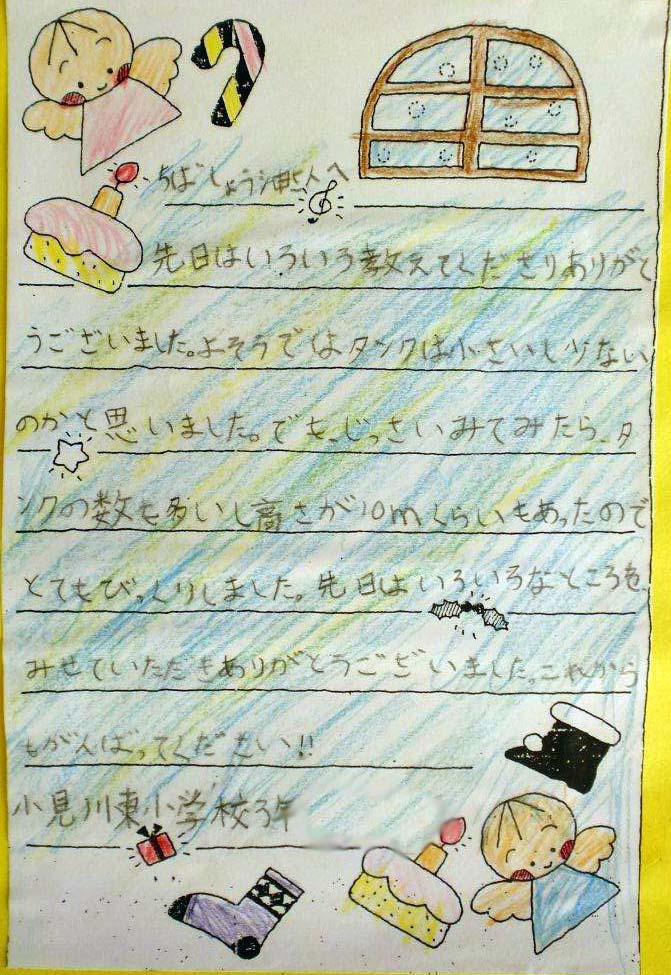 ちばしょう油さんへ
先日はいろいろ教えてくださりありがと
うございました。よそうではタンクは小さいし少ない
のかと思いました。でも、じっさいみてみたら、タ
ンクの数も多いし高さが10mくらいもあったので
とてもびっくりしました。先日はいろいろなところを
みせていただきありがとうございました。これから
もがんばってください!!
小見川東小学校3年